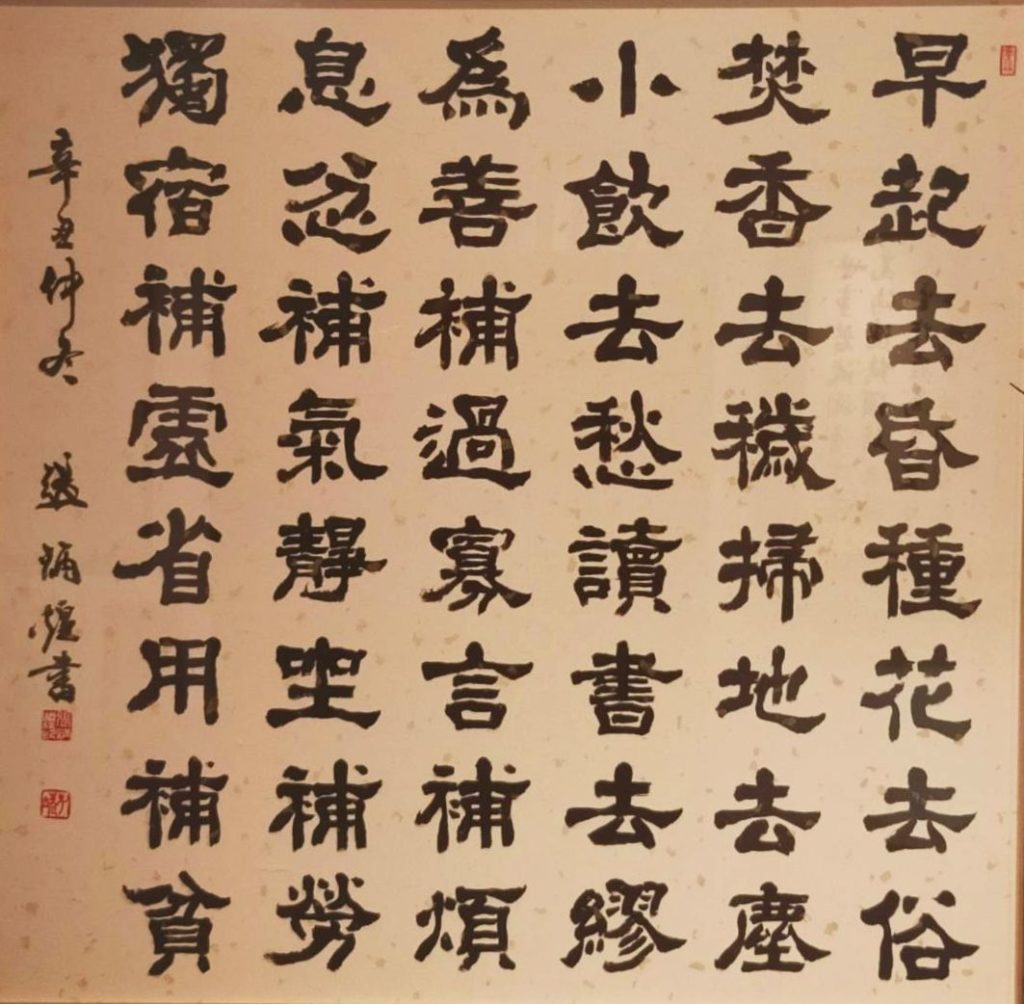 早起去昏種花去俗
焚香去穢掃地去塵
小飲去愁讀書去繆
為善補過寡言補煩
息忿補氣靜坐補勞
獨宿補靈省用補貧
辛丑仲冬 張 煌書